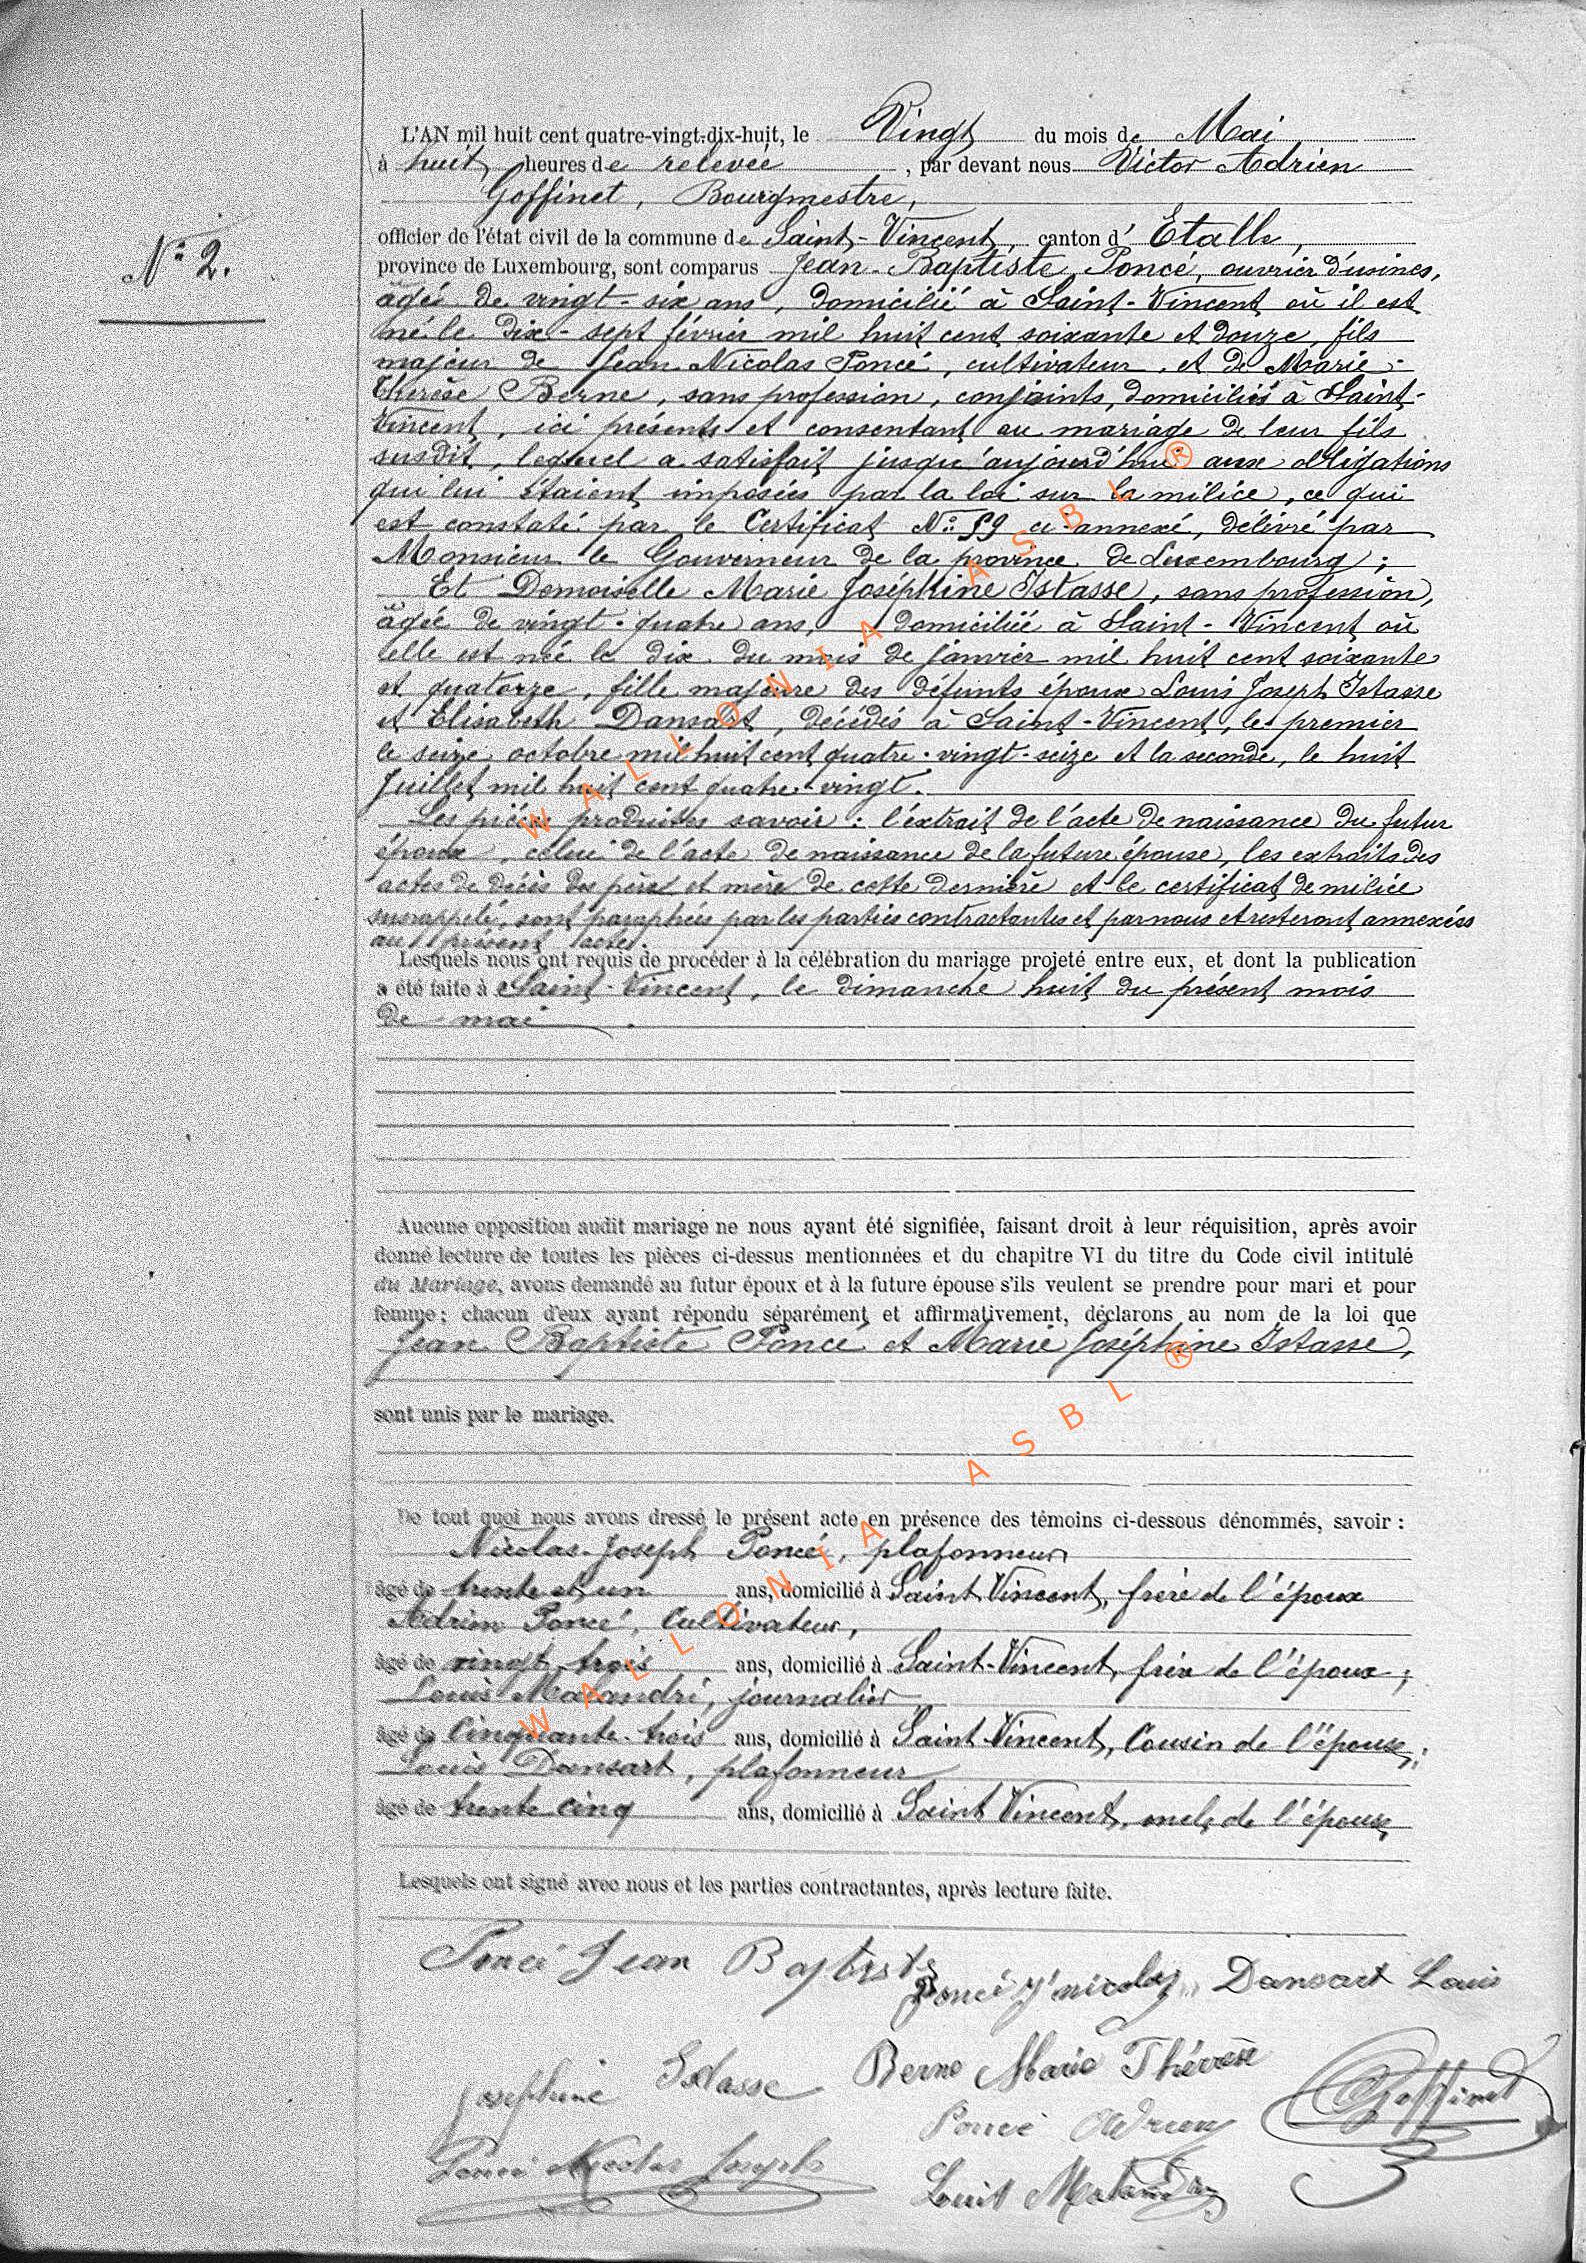 N° 2.
L'AN mil huit cent quatre-vingt-dix-huit, le Vingt du mois de Mai
à huit heures de relevée, par devant nous Victor Adrien
Goffinet, Bourgmestre,
officier de l'état civil de la commune de Saint-Vincent, canton d'Etalle,
province de Luxembourg, sont comparus Jean-Baptiste Poncé, ouvrier d'usines,
âgé de vingt-six ans, domicilié à Saint-Vincent où il est
né le dix-sept février mil huit cent soixante et douze, fils
majeur de Jean Nicolas Poncé, cultivateur, et de Marie-
Thérèse Berne, sans profession, conjoints, domiciliés à Saint-
Vincent, ici présents et consentant au mariage de leur fils
susdit, lequel a satisfait jusqu'aujourd'hui aux obligations
qui lui étaient imposées par la loi sur la milice, ce qui
est constaté par le Certificat N° 59 ci-annexé, délivré par
Monsieur le Gouverneur de la province de Luxembourg;
Et Demoiselle Marie Joséphine Istasse, sans profession,
âgée de vingt-quatre ans, domiciliée à Saint-Vincent où
elle est née le dix du mois de janvier mil huit cent soixante
et quatorze, fille majeure des défunts époux Louis Joseph Istasse
et Elisabeth Dansart, décédés à Saint-Vincent, le premier
le seize octobre mil huit cent quatre-vingt-seize et la seconde, le huit
Juillet mil huit cent quatre-vingt.
Les pièces produites savoir: l'extrait de l'acte de naissance du futur
époux, celui de l'acte de naissance de la future épouse, les extraits des
actes de décès des père et mère de cette dernière et le certificat de milice
susrappelé, sont paraphées par les parties contractantes et par nous et resteront annexées
au présent acte.
Lesquels nous ont requis de procéder à la célébration du mariage projeté entre eux, et dont la publication
a été faite à Saint-Vincent, le dimanche huit du présent mois
de mai.
Aucune opposition audit mariage ne nous ayant été signifiée, faisant droit à leur réquisition, après avoir
donné lecture de toutes les pièces ci-dessus mentionnées et du chapitre VI du titre du Code civil intitulé
du Mariage, avons demandé au futur époux et à la future épouse s'ils veulent se prendre pour mari et pour
femme; chacun d'eux ayant répondu séparément et affirmativement, déclarons au nom de la loi que
Jean Baptiste Poncé et Marie Joséphine Istasse,
sont unis par le mariage.
De tout quoi nous avons dressé le présent acte en présence des témoins ci-dessous dénommés, savoir :
Nicolas-Joseph Poncé, plafonneur
âgé de trente et un ans, domicilié à Saint Vincent, frère de l'époux
Adrien Poncé, Cultivateur,
âgé de vingt-trois ans, domicilié à Saint-Vincent, frère de l'époux;
Louis Malandri, journalier
âgé de Cinquante-trois ans, domicilié à Saint-Vincent, Cousin de l'épouse;
Louis Dansart, plafonneur
âgé de trente cinq ans, domicilié à Saint Vincent, oncle de l'épouse
Lesquels ont signé avec nous et les parties contractantes, après lecture faite.
Poncé Jean Baptiste
Poncé J. nicolas Dansart Louis
Josephine Istasse Berne Marie Thérèse
Poncé Adrien Goffinet
Poncé Nicolas Joseph
Louis
WALLONIA ASBL ®
WALLONIA ASBL ®